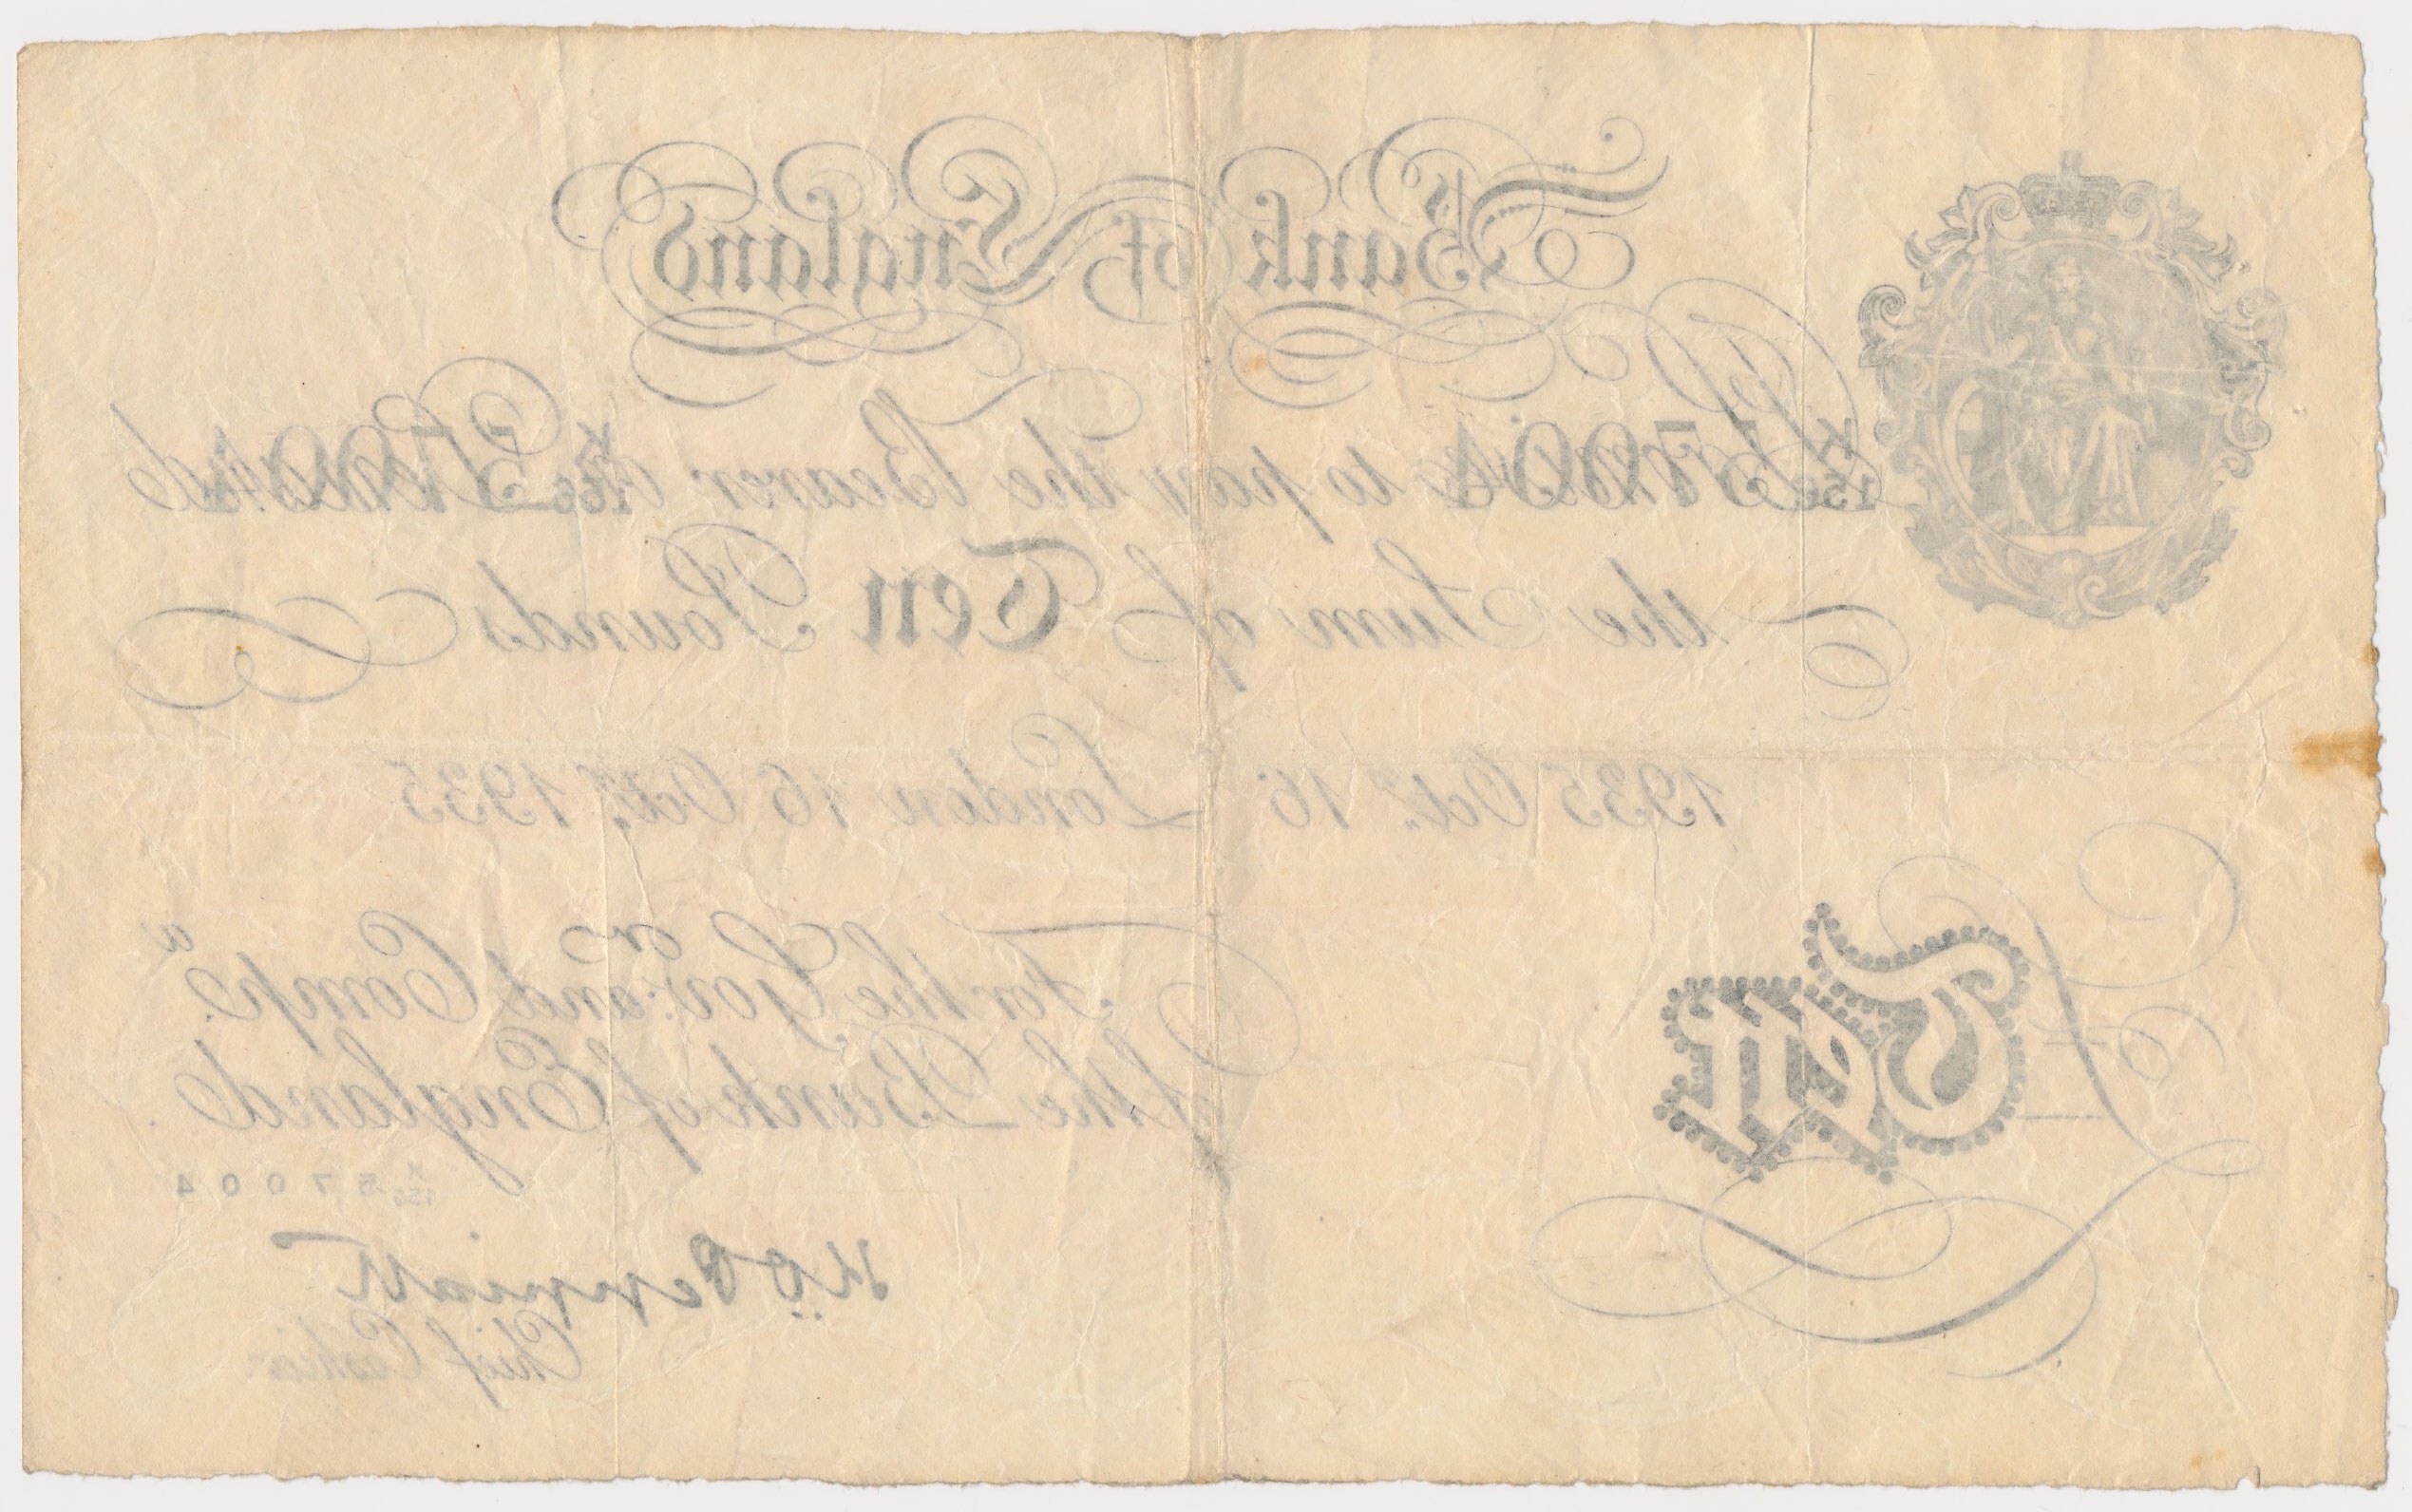 Bank of England
K 156 57004 I Promise to pay the Bearer on Demand K 156 57004
the Sum of Ten Pounds
1935 Octr. 16 London 16 Octr. 1935
For the Govr. and Compa.
of the Bank of England
K 156 57004
Ten
K O Peppiatt
Chief Cashier